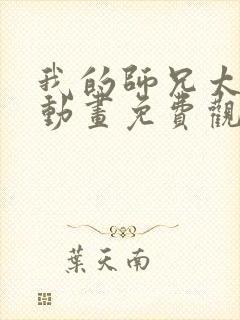 我的師兄太
動畫免費觀
葉天南